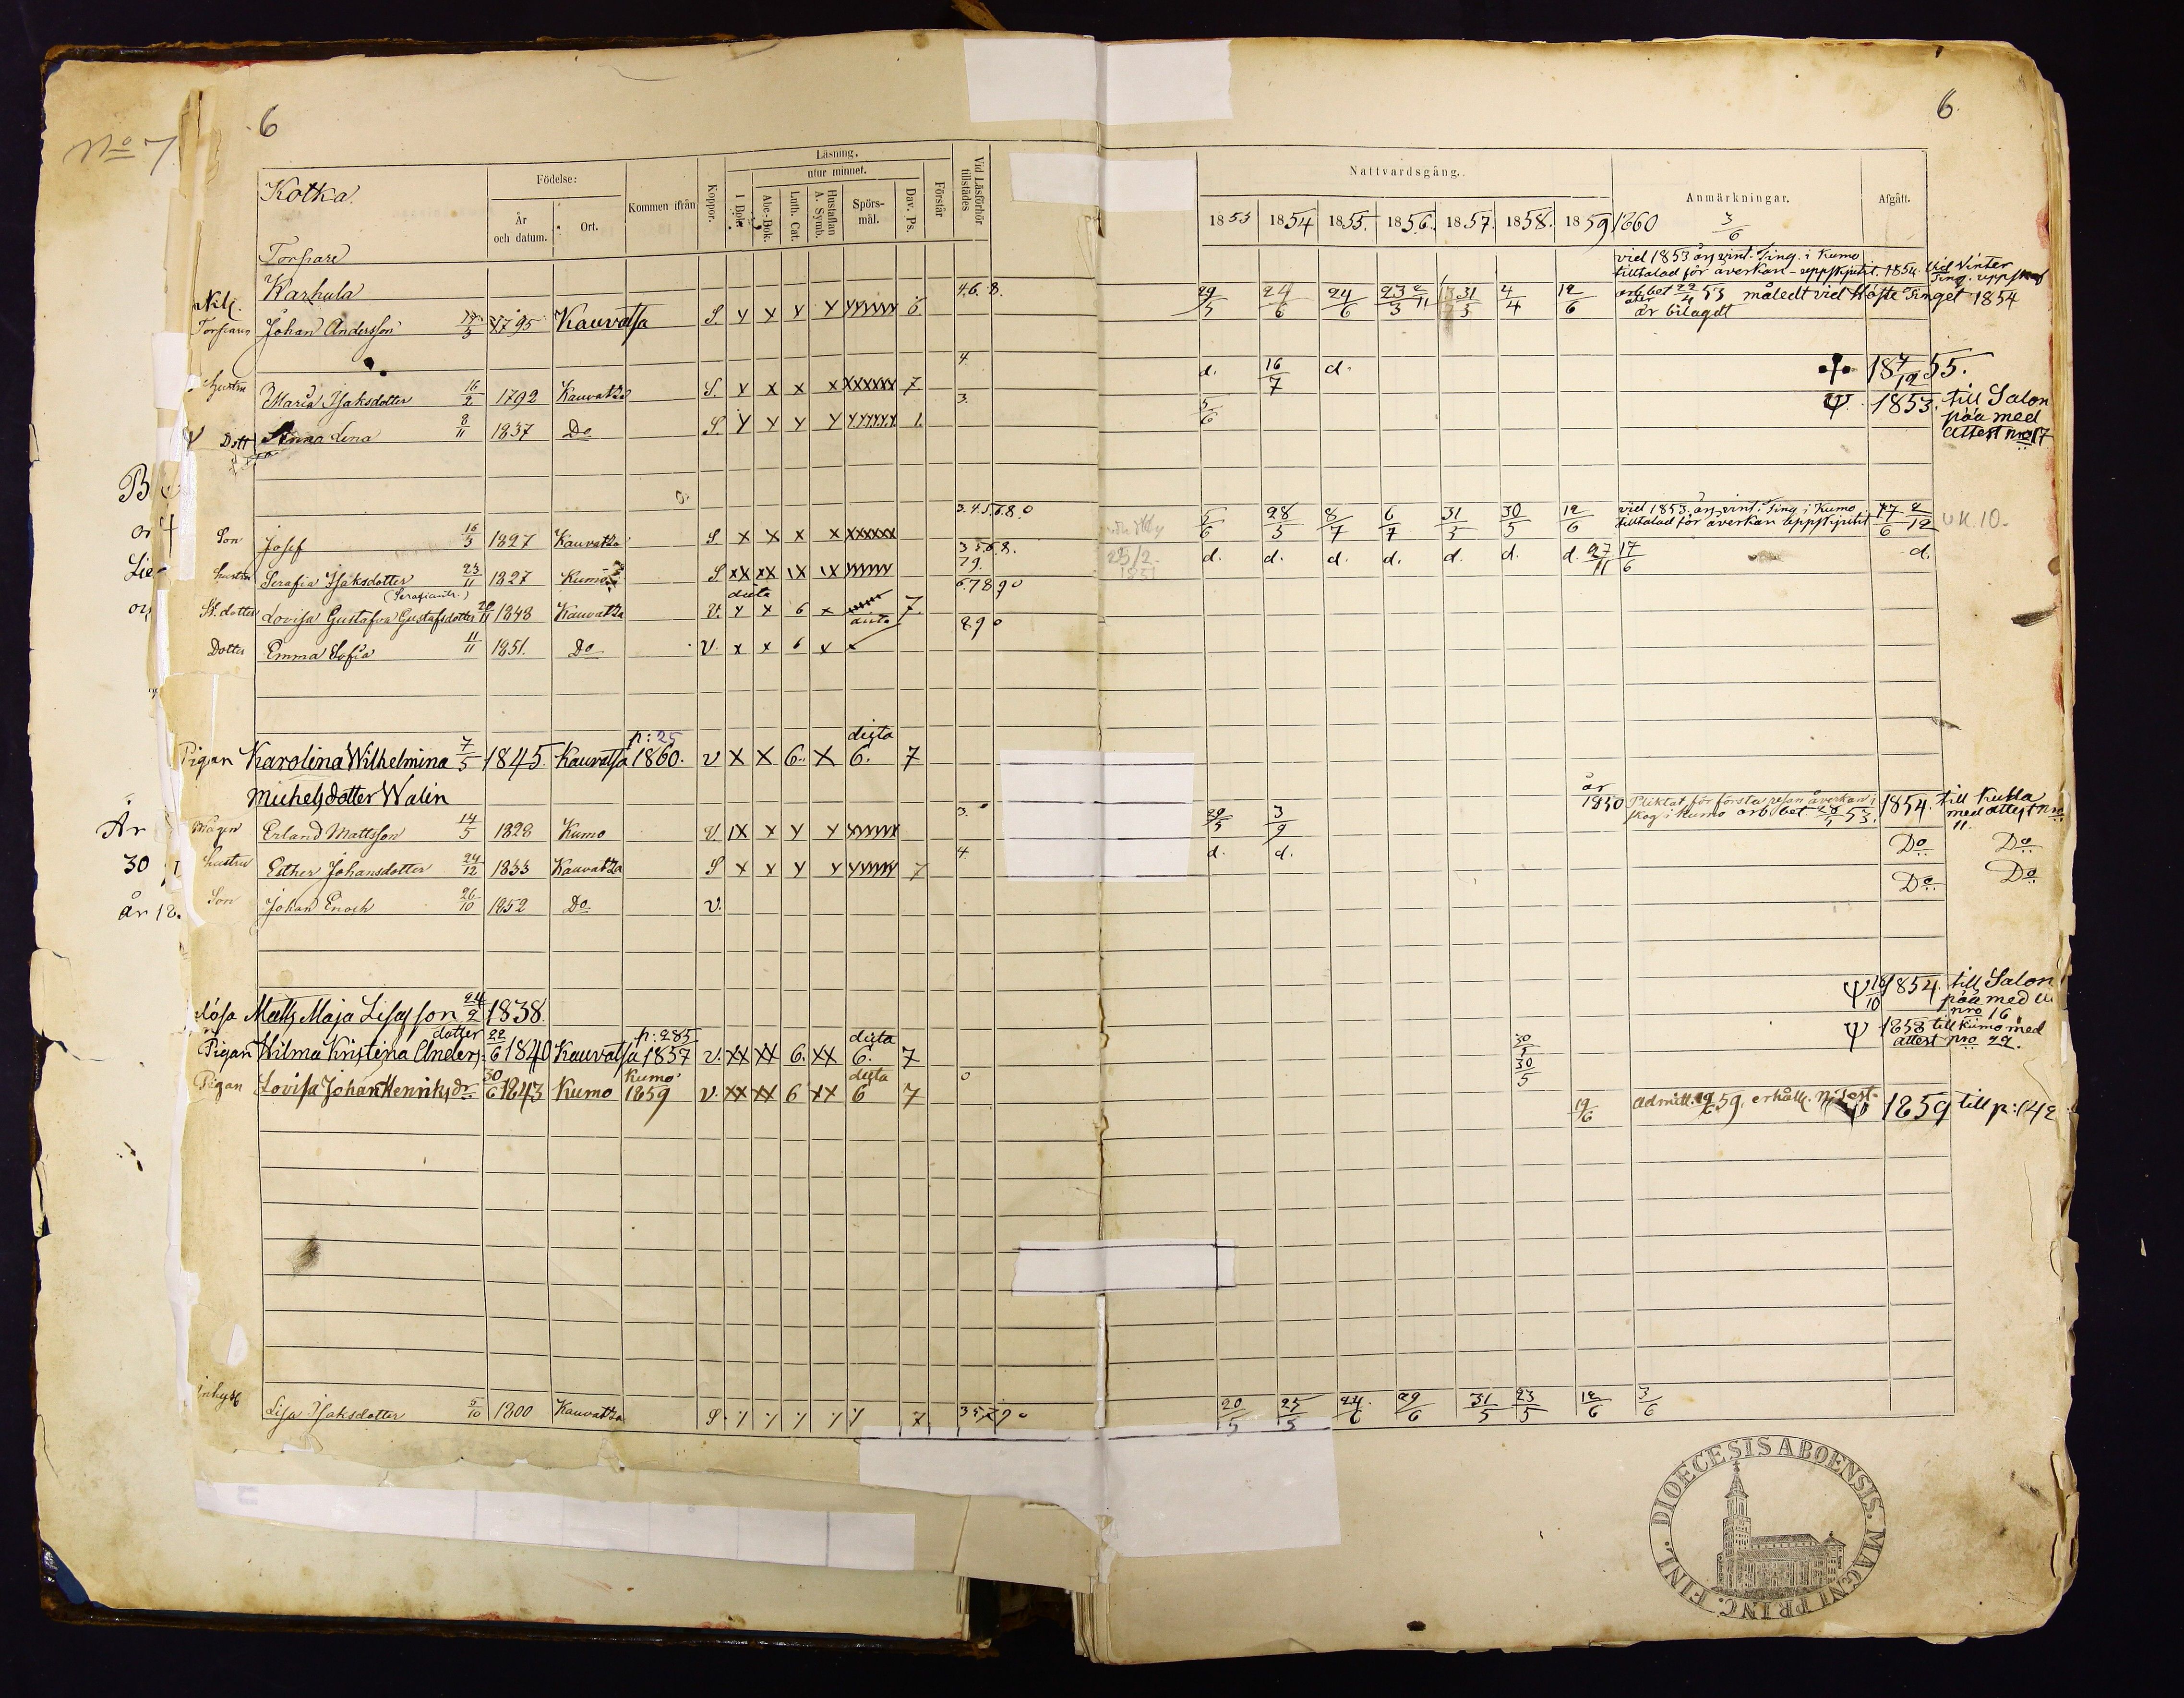 No 7
6
6.
Kotka.
Födelse:
År och datum.
Ort.
Kommen ifrån
Koppor.
Läsning.
I Bok.
utur minnet.
Abc-Bok.
Luth. Cat.
Hustaflan A. Symb.
Spörs-mål.
Dav. Ps.
Förstår
Vid Läsförhör tillstädes
Nattvardsgång.
1853 1854 1855. 1856. 1857. 1858. 1859 1860
Anmärkningar.
Afgått.
3/6
Torpare
Karhula
vid 1853 års vint. Ting i Kumo
tilltalad för åverkan uppskjutit. 1854. Vid Vinter
Ting. uppskof
Torparen Johan Andersson 1795 Kauvatsa S. 6 4.6.8. 24/6 24/6 31/5 4/4 12/6 arb. bet 53 måledt vid Höste Tinget 1854
är bilagdt
hustru Maria Isaksdotter 16/2 1792 Kauvatsa S. x x x x xxxxxx 7 4 d. 16/7 d. 18 7/12 55.
Dott Anna Lena 8/11 1837 Do S. 3. 5/6 1853. till Salon
påa med
attest nro 17
Son Josef 16/5 1827 Kauvatsa S x x x x xxxxxx 3.4.5.6.8.0 5/6 28/5 8/7 6/7 31/5 30/5 12/6 vid 1853 års vint. Ting i Kumo
tilltalad för åverkan uppskjutit 17/6 2/12 UK.10.
hustru Serafia Isaksdotter 23/11 1827 Kumo S xx xx 3 5.6.8. 79. d. d. d. d. d. d. d. 27/11 17/6 d.
(Serafiantr.)
25/2. 1851
St. dotter Lovisa Gustafva Gustafsdotter 20/11 1848 Kauvatsa v. dicta 6 x 7. 67890
Dotter Emma Sofia 11/11 1851. Do v. x x 6 x x 890
Pigan Karolina Wilhelmina 7/5 1845. Kauvatsa p:25 1860. v x x 6. x dicta 6. 7
Michelsdotter Walin
Mågen Erland Mattsson 14/5 1828 Kumo v. 3. 20/5 3/9 år 1850 Pliktat för första resan åverkan i
skog i Kumo arb. bet. 28/5 53. 1854. till Kulla
med attest nro
11.
hustru Esther Johansdotter 24/12 1833 Kauvatsa S 7 4. d. d. Do Do
Son Johan Enoch 26/10 1852 Do v. Do Do
År
30
år 18.
lösa Matts Maja Lisasson 24/2 1838. 18/10 1854. till Salon
påa med
nro 16
Pigan Hilma Kristina Anders dotter 22/6 1840 Kauvatsa p:285 1857 v. xx xx 6. xx dicta 6. 7 30/5 1858 till Kumo med
attest nro 29.
Pigan Lovisa Johan Henriksdr 30/6 1843 Kumo Kumo 1859 v. xx xx 6 xx dicta 6 7 0 30/5 19/6 admitt. 19/6 59. erhåll. 1859 till p:142
Inhyse Lisa Isaksdotter 5/10 1800 Kauvatsa S. 7. 20/5 25/5 24/6 29/6 31/5 23/5 12/6 3/6
DIOECESIS ABOENSIS. MAGNI PRINC. FINL.